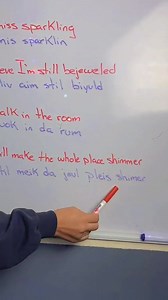 miss sparkling
mis sparklin
I'm still bejeweled
aim stil biyuld
in the room
in da rum
make the whole place shimmer
meik da joul pleis shimer